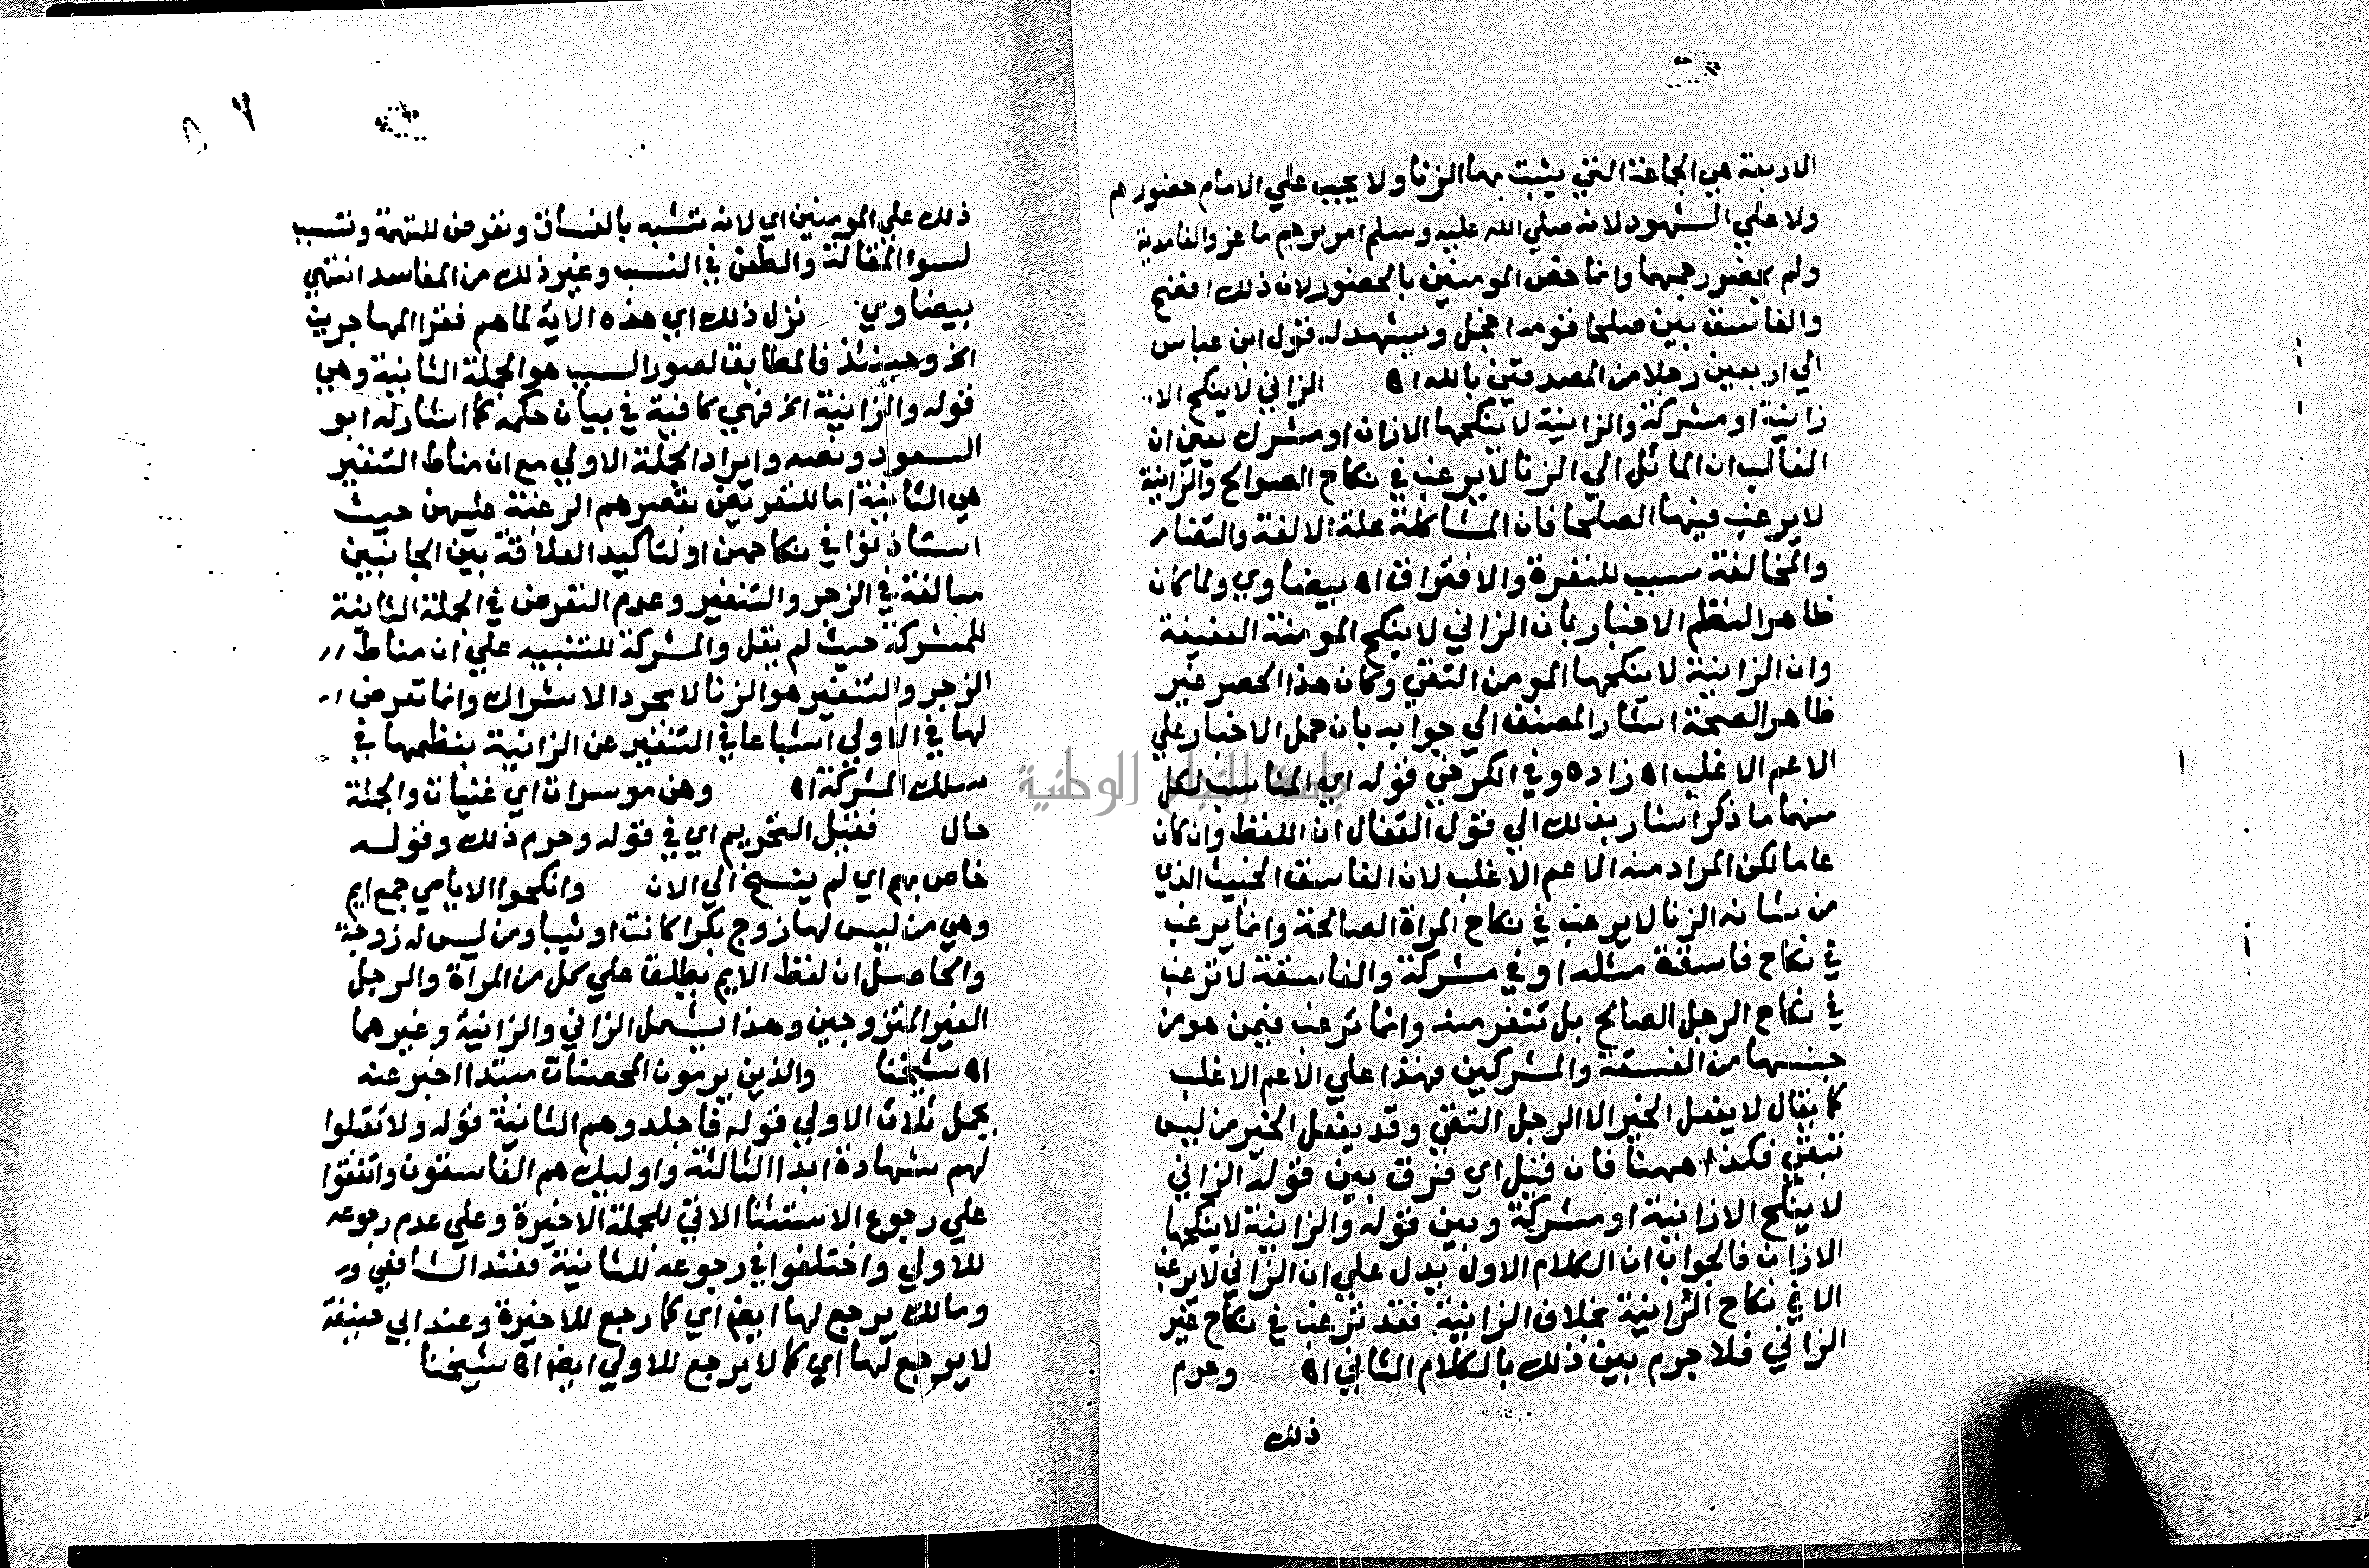 الاربعة هي الجماعة التي يثبت بها الزنا ولا يجب علي الامام حضورهم
ولا علي الشهود لانه صلي الله عليه وسلم امر برجم ماعز والغامدية
ولم يحضر رجمهما وانما خص المومنين بالحضور لان ذلك افضح
والفاسق بين صلحا قومه اخجل ويشهد له قول ابن عباس
الي اربعين رجلا من المصدقين بالله اه الزاني لا ينكح الا
زانية او مشركة والزانية لا ينكحها الا زان او مشرك يعني ان
الغالب ان المائل الي الزنا لا يرغب في نكاح الصوالح والزانية
لا يرغب فيها الصلحا فان المشاكلة علة الالفة والتضام
والمخالفة سبب للنفرة والافتراق اه بيضاوي ولما كان
ظاهر النظم الاخبار بان الزاني لا ينكح المومنة العفيفة
وان الزانية لا ينكحها المومن التقي وكان هذا الحصر غير
ظاهر الصحة اشار المصنف الي جوابه بان حمل الاخبار علي
الاعم الاغلب اه زاده وفي الكرخي قوله اي المناسب لكل
منهما ما ذكر اشار بذلك الي قول القفال ان اللفظ وان كان
عاما لكن المراد منه الاعم الاغلب لان الفاسق الخبيث الذي
من شانه الزنا لا يرغب في نكاح المراة الصالحة وانما يرغب
في نكاح فاسقة مثله او في مشركة والفاسقة لا ترغب
في نكاح الرجل الصالح بل تنفر منه وانما ترغب فيمن هو من
جنسها من الفسقة والمشركين فهذا علي الاعم الاغلب
كما يقال لا يفعل الخير الا الرجل التقي وقد يفعل الخير من ليس
بتقي فكذا ههنا فان قيل اي فرق بين قوله الزاني
لا ينكح الا زانية او مشركة وبين قوله والزانية لا ينكحها
الا زان فالجواب ان الكلام الاول يدل علي ان الزاني لا يرغب
الا في نكاح الزانية بخلاف الزانية فقد ترغب في نكاح غير
الزاني فلا جرم بين ذلك بالكلام الثاني اه وحرم
ذلك
ذلك علي المومنين اي لانه تشبه بالفساق وتعرض للتهمة وتسبب
لسوا المقالة والطعن في النسب وغير ذلك من المفاسد انتهي
بيضاوي نزل ذلك اي هذه الاية لما هم فقرا المهاجرين
الخ وحينئذ فالمطابق لصور السبب هو الجملة الثانية وهي
قوله والزانية الخ فهي كافية في بيان حكمه كما اشار له ابو
السعود ونصه وايراد الجملة الاولي مع ان مناط التنفير
هي الثانية اما للتعريض بقصرهم الرغبة عليهن حيث
استاذنوا في نكاحهن او لتاكيد العلاقة بين الجانبين
مبالغة في الزجر والتنفير وعدم التعرض في الجملة الثانية
للمشركة حيث لم يقل والمشركة للتنبيه علي ان مناط
الزجر والتنفير هو الزنا لا مجرد الاشراك وانما تعرض
لها في الاولي اشباعا في التنفير عن الزانية بنظمها في
سلك المشركة اه وهن موسرات اي غنيات والجملة
حال فقيل التحريم اي في قوله وحرم ذلك وقوله
خاص بهم اي لم ينسخ الي الان وانكحوا الايامي جمع ايم
وهي من ليس لها زوج بكرا كانت او ثيبا ومن ليس له زوجة
والحاصل ان لفظ الايم يطلق علي كل من المراة والرجل
الغير المتزوجين وهذا يشمل الزاني والزانية وغيرهما
اه شيخنا والذين يرمون المحصنات مبتدا اخبر عنه
بجمل ثلاث الاولي قوله فاجلدوهم الثانية قوله ولا تقبلوا
لهم شهادة ابدا الثالثة واوليك هم الفاسقون واتفقوا
علي رجوع الاستثنا الاتي للجملة الاخيرة وعلي عدم رجوعه
للاولي واختلفوا في رجوعه للثانية فعند الشافعي
ومالك يرجع لها ايضا اي كما رجع للاخيرة وعند ابي حنيفة
لا يرجع لها اي كما لا يرجع للاولي ايضا اه شيخنا